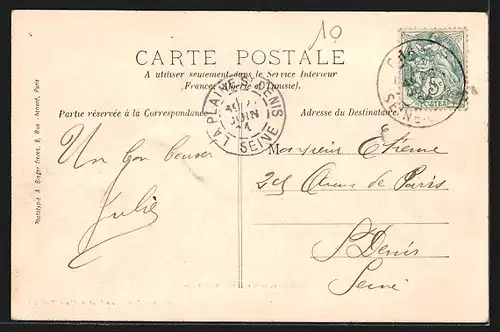 10
CARTE POSTALE
A utiliser seulement dans le Service Intérieur
(France, Algérie et Tunisie).
Partie réservée à la Correspondance
Adresse du Destinataire.
LA PLAINE ST DENIS
JUIN
SEINE
SEINE
5
POSTES
Un bon baiser
Julie
Monsieur Etienne
Avenue de Paris
St Denis
Seine
Phototypie A. Breger Frères, 9, Rue Thénard, Paris